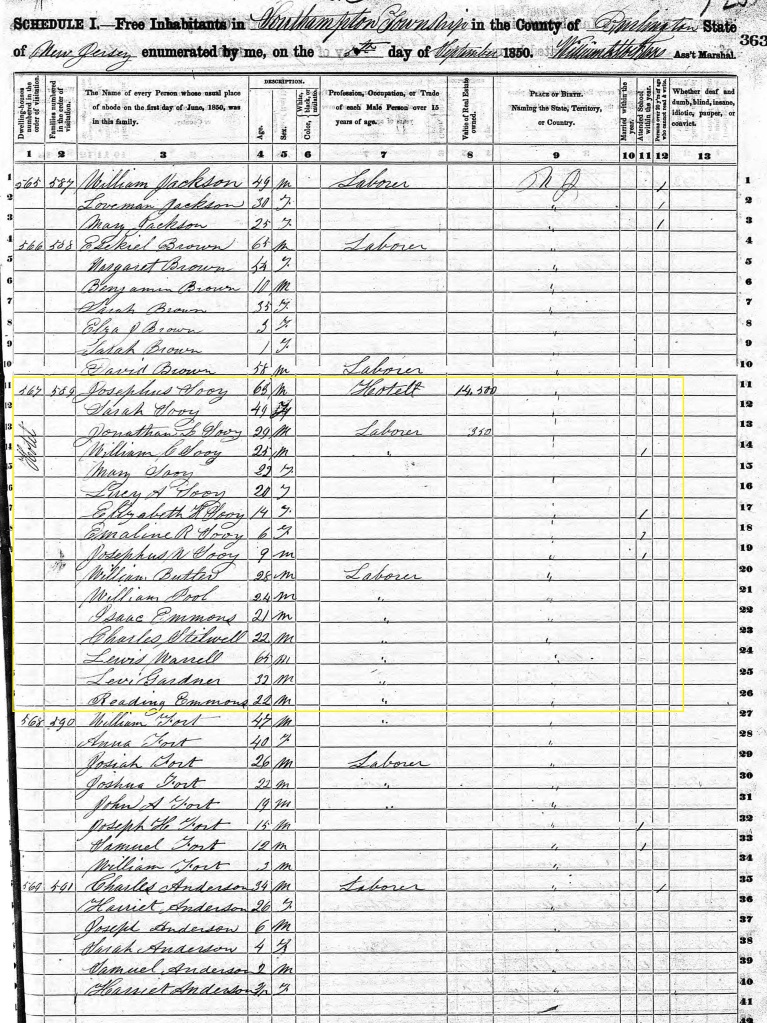 SCHEDULE I.—Free Inhabitants in Southampton Township in the County of Burlington State
of New Jersey enumerated by me, on the day of September 1850. Ass't Marshal.
363
Dwelling-houses numbered in the order of visitation.
Families numbered in the order of visitation.
The Name of every Person whose usual place of abode on the first day of June, 1850, was in this family.
DESCRIPTION.
Age.
Sex.
Color,
Profession, Occupation, or Trade of each Male Person over 15 years of age.
Value of Real Estate owned.
PLACE OF BIRTH.
Naming the State, Territory, or Country.
Married within the year.
Attended School within the year.
Persons over 20 y'rs of age who cannot read & write.
Whether deaf and dumb, blind, insane, idiotic, pauper, or convict.
1 2 3 4 5 6 7 8 9 10 11 12 13
1 565 587 William Jackson 49 M Laborer N J / 1
2 Loveman Jackson 30 F " / 2
3 Mary Jackson 25 F " / 3
4 566 588 Ezekiel Brown 65 M Laborer 4
5 Margaret Brown 54 F " 5
6 Benjamin Brown 10 M " 6
7 Sarah Brown 35 F " 7
8 Elza J Brown 3 F " 8
9 Sarah Brown 1 F " 9
10 David Brown 58 M Laborer " 10
11 567 589 Josephus Sooy 65 M Hotell 14,500 " 11
12 Sarah Sooy 49 F " 12
Hotel
13 Jonathan Sooy 29 M Laborer 350 " 13
14 William C Sooy 25 M " " / 14
15 Mary Sooy 22 F " 15
16 Lucy A Sooy 20 F " 16
17 Elizabeth H Sooy 14 F " / 17
18 Emaline R Sooy 6 F " / 18
19 Josephus N Sooy 9 M " / 19
20 William Butler 28 M Laborer " 20
21 William Pool 24 M " " 21
22 Isaac Emmons 21 M " " 22
23 Charles Stilwell 22 M " " 23
24 Lewis Warrell 65 M " " 24
25 Levi Gardner 33 M " " 25
26 Reading Emmons 22 M " " 26
27 568 590 William Fort 47 M " " 27
28 Anna Fort 40 F " 28
29 Josiah Fort 26 M Laborer " 29
30 Joshua Fort 22 M " " 30
31 John A Fort 19 M " " 31
32 Joseph H Fort 15 M " / 32
33 Samuel Fort 12 M " / 33
34 William Fort 3 M " 34
35 569 591 Charles Anderson 34 M Laborer " / 35
36 Harriet Anderson 26 F " 36
37 Joseph Anderson 6 M " 37
38 Sarah Anderson 4 F " 38
39 Samuel Anderson 2 M " 39
40 Harriet Anderson F " 40
41
42